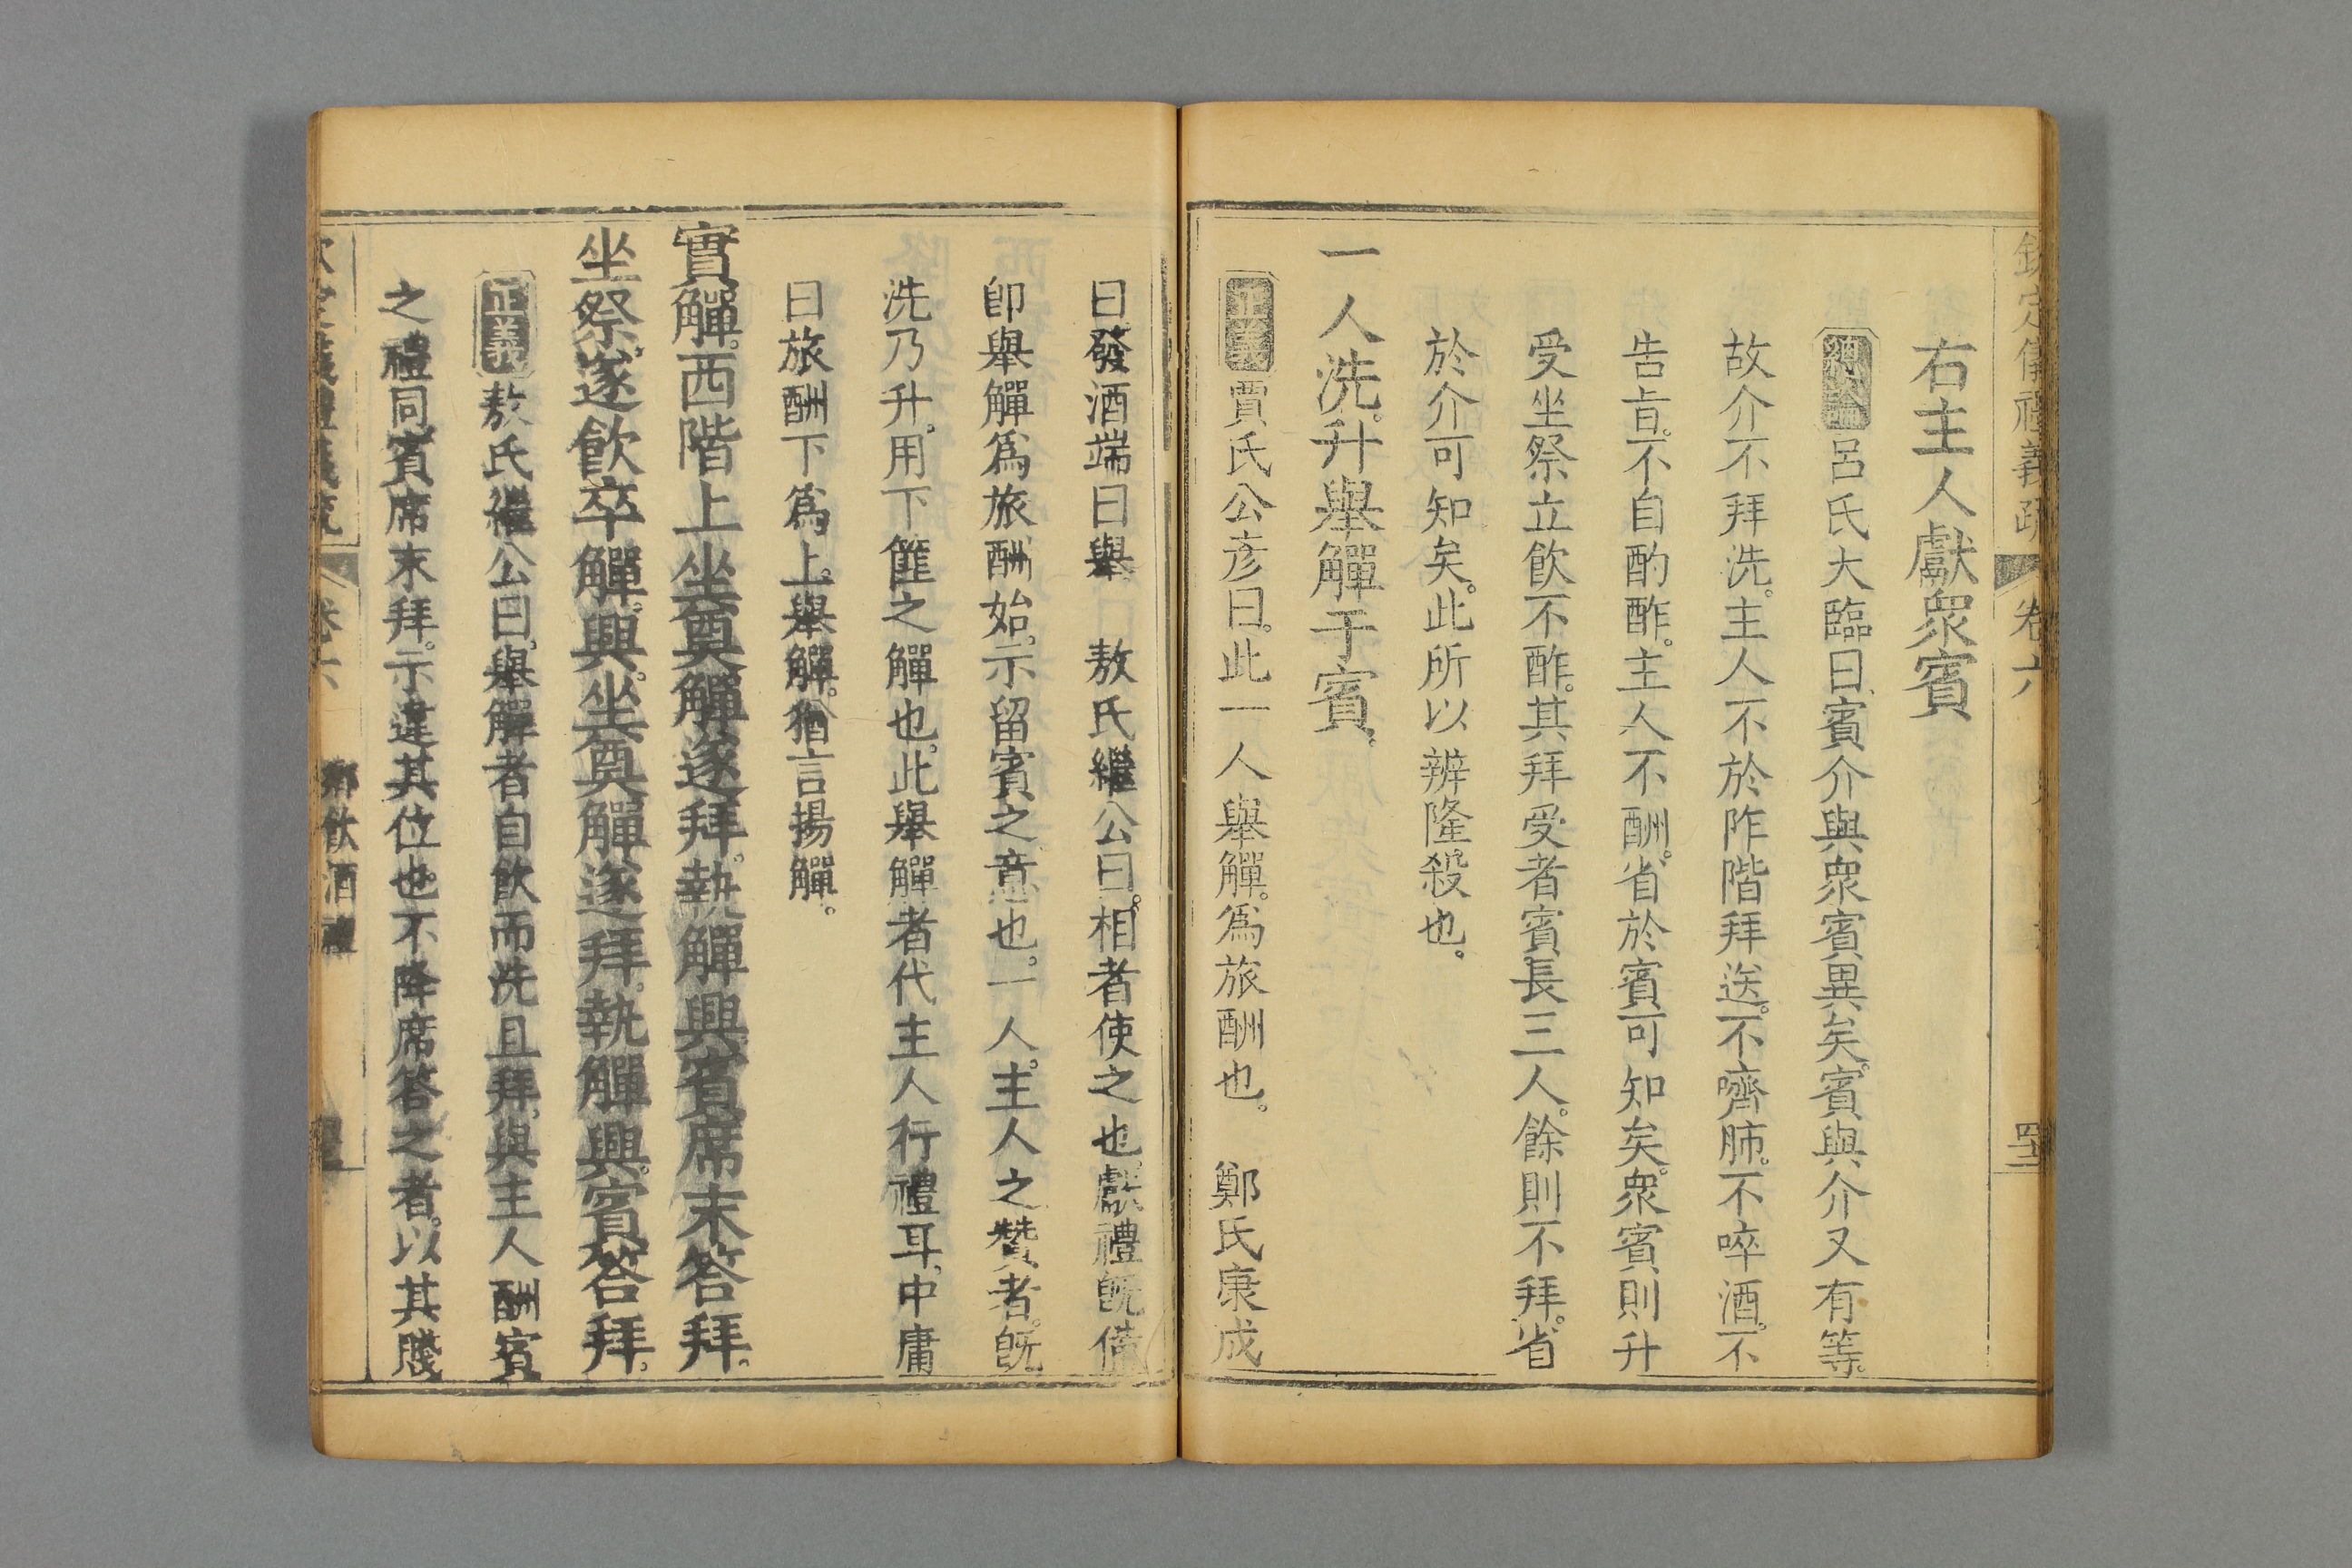 欽定儀禮義疏 卷六
右主人獻衆賓
總論 呂氏大臨曰賓介與衆賓異矣賓與介又有等
故介不拜洗主人不於阼階拜送不嚌肺不啐酒不
告旨不自酌酢主人不酬省於賓可知矣衆賓則升
受坐祭立飲不酢其拜受者賓長三人餘則不拜省
於介可知矣此所以辨隆殺也
一人洗升舉觶于賓
正義 賈氏公彥曰此一人舉觶爲旅酬也 鄭氏康成
曰發酒端曰舉 敖氏繼公曰相者使之也獻禮旣備
卽舉觶爲旅酬始示留賓之意也一人主人之贊者旣
洗乃升用下篚之觶也此舉觶者代主人行禮耳中庸
曰旅酬下爲上舉觶猶言揚觶
實觶西階上坐奠觶遂拜執觶興賓席末答拜
坐祭遂飲卒觶興坐奠觶遂拜執觶興賓荅拜
正義 敖氏繼公曰舉觶者自飲而洗且拜與主人酬賓
之禮同賓席末拜示違其位也不降席答之者以其賤
欽定儀禮義疏 卷六 鄉飲酒禮